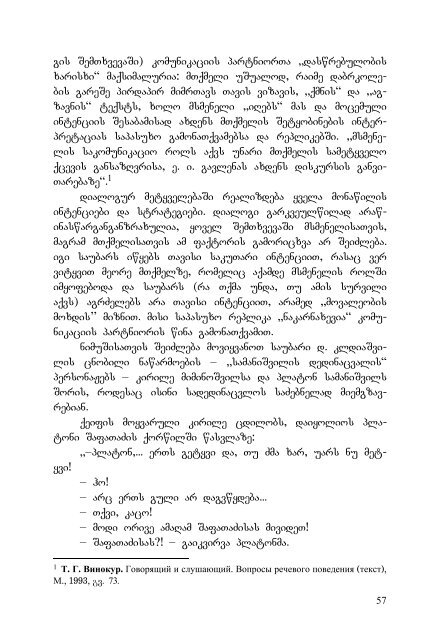 გის შემთხვევაში) კომუნიკაციის პარტნიორთა „დასწრებულობის
ხარისხი“ მაქსიმალურია: მთქმელი უშუალოდ, რაიმე დაბრკოლე-
ბის გარეშე პირდაპირ მიმრთავს თავის ვიზავის, „ქმნის“ და „აგ-
ზავნის“ ტექსტს, ხოლო მსმენელი „იღებს“ მას და მოცემული
ინტენციის შესაბამისად ახდენს მთქმელის შეტყობინების ინტერ-
პრეტაციას საპასუხო გამონათქვამებსა და რეპლიკებში. „მსმენე-
ლის საკომუნიკაციო როლს აქვს უნარი მთქმელის სამეტყველო
ქცევის განსაზღვრისა, ე. ი. გავლენას ახდენს დისკურსის განვი-
თარებაზე“.¹
დიალოგურ მეტყველებაში რეალიზდება ყველა მონაწილის
ინტენციები და სტრატეგიები. დიალოგი გარკვეულწილად არაწ-
ინასწარგანგანზრახულია, ყოველ შემთხვევაში მსმენელისათვის,
მაგრამ მთქმელისათვის ამ ფაქტორის გამორიცხვა არ შეიძლება.
იგი საუბარს იწყებს თავისი საკუთარი ინტენციით, რასაც ვერ
ვიტყვით მეორე მთქმელზე, რომელიც აქამდე მსმენელის როლში
იმყოფებოდა და საუბარს (რა თქმა უნდა, თუ ამის სურვილი
აქვს) აგრძელებს არა თავისი ინტენციით, არამედ „მოვალეობის
მოხდის” მიზნით. მისი საპასუხო რეპლიკა „ნაკარნახევია“ კომუ-
ნიკაციის პარტნიორის წინა გამონათქვამით.
ნიმუშისათვის შეიძლება მოვიყვანოთ საუბარი დ. კლდიაშვი-
ლის ცნობილი ნაწარმოების – „სამანიშვილის დედინაცვალის“
პერსონაჟებს – კირილე მიმინოშვილსა და პლატონ სამანიშვილს
შორის, როდესაც ისინი სადედინაცვლოს საძებნელად მიემგზავ-
რებიან.
ქეიფის მოყვარული კირილე ცდილობს, დაიყოლიოს პლა-
ტონი შაფათაძის ქორწილში წასვლაზე:
„–პლატონ,... ერთს გეტყვი და, თუ ძმა ხარ, უარს ნუ მეტ-
ყვი!
– ჰო!
– არც ერთს გული არ დაგვწყდება...
– თქვი, კაცო!
– მოდი ორივე ამაღამ შაფათაძისას მივიდეთ!
– შაფათაძისას?! – გაიკვირვა პლატონმა.
¹ Т. Г. Винокур. Говорящий и слушающий. Вопросы речевого поведения (текст),
М., 1993, გვ. 73.
57